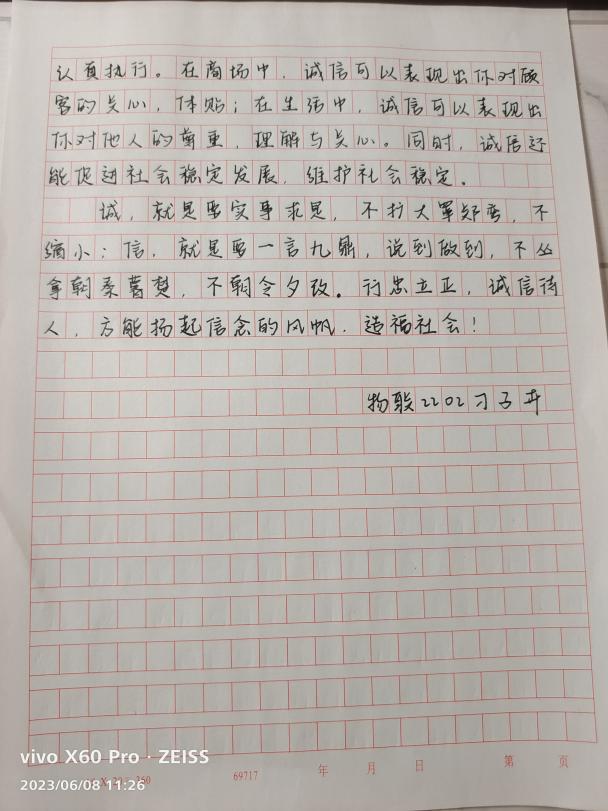 认真执行。在商场中，诚信可以表现出你对顾
客的关心，体贴；在生活中，诚信可以表现出
你对他人的尊重，理解与关心。同时，诚信还
能促进社会稳定发展，维护社会稳定。
诚，就是要实事求是，不扩大军郑蛮，不
缩小；信，就是要一言九鼎，说到做到，不丛
拿朝秦暮楚，不朝令夕改。行忠立正，诚信待
人，方能扬起信念的风帆，造福社会！
物联2202刁子卉
20 260
69717 年 月 日 第 页
vivo X60 Pro · ZEISS
2023/06/08 11:26